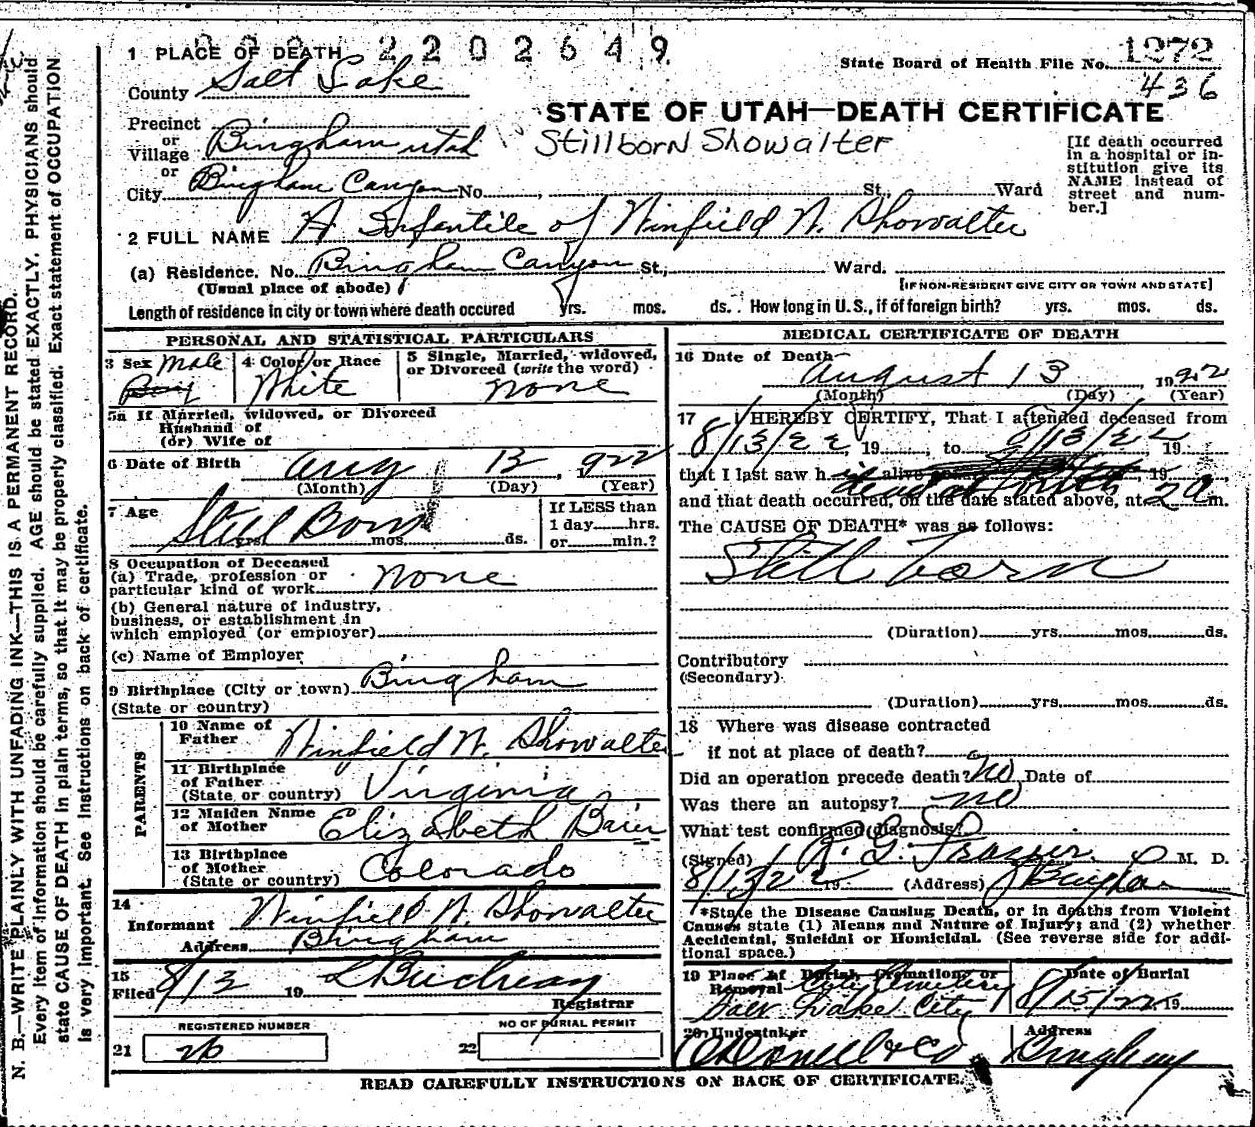 2202649.
1 PLACE OF DEATH
State Board of Health File No. 1272
436
County Salt Lake
STATE OF UTAH—DEATH CERTIFICATE
Precinct
or
Village Bingham utah
Stillborn Showalter
[If death occurred
in a hospital or in-
stitution give its
NAME instead of
street and num-
ber.]
or
City Bingham Canyon No. , St., Ward
2 FULL NAME A Infantile of Winfield N. Showalter
(a) Residence. No. Bingham Canyon St., Ward.
(Usual place of abode)
[IF NON-RESIDENT GIVE CITY OR TOWN AND STATE]
Length of residence in city or town where death occured yrs. mos. ds. How long in U.S., if of foreign birth? yrs. mos. ds.
PERSONAL AND STATISTICAL PARTICULARS
3 Sex Male
Boy
4 Color or Race
White
5 Single, Married, widowed,
or Divorced (write the word)
none
5a If Married, widowed, or Divorced
Husband of
(or) Wife of
6 Date of Birth Aug 13, 1922
(Month) (Day) (Year)
7 Age Still Born
yrs. mos. ds.
If LESS than
1 day hrs.
or min.?
8 Occupation of Deceased
(a) Trade, profession or
particular kind of work none
(b) General nature of industry,
business, or establishment in
which employed (or employer)
(c) Name of Employer
9 Birthplace (City or town) Bingham
(State or country)
PARENTS
10 Name of
Father Winfield N. Showalter
11 Birthplace
of Father
(State or country) Virginia
12 Maiden Name
of Mother Elizabeth Baier
13 Birthplace
of Mother
(State or country) Colorado
14
Informant Winfield N. Showalter
Address Bingham
15
Filed 8/13 19
Registrar
REGISTERED NUMBER
21 26
NO OF BURIAL PERMIT
22
MEDICAL CERTIFICATE OF DEATH
16 Date of Death
August 13, 1922
(Month) (Day) (Year)
17 I HEREBY CERTIFY, That I attended deceased from
8/13/22, 19 , to 8/13/22 19
that I last saw h alive 19
and that death occurred, on the date stated above, at 2 a m.
The CAUSE OF DEATH* was as follows:
Still born
(Duration) yrs. mos. ds.
Contributory
(Secondary)
(Duration) yrs. mos. ds.
18 Where was disease contracted
if not at place of death?
Did an operation precede death? no Date of
Was there an autopsy? no
What test confirmed diagnosis?
(Signed) R. G. Frazier M. D.
8/13/22 19 (Address) Bingham
*State the Disease Causing Death, or in deaths from Violent
Causes state (1) Means and Nature of Injury; and (2) whether
Accidental, Suicidal or Homicidal. (See reverse side for addi-
tional space.)
19 Place of Burial, Cremation, or
Removal City Cemetery
Salt Lake City
Date of Burial
8/15/22 19
20 Undertaker
O'Donnell & Co
Address
Bingham
READ CAREFULLY INSTRUCTIONS ON BACK OF CERTIFICATE.
N. B.—WRITE PLAINLY WITH UNFADING INK—THIS IS A PERMANENT RECORD.
Every item of information should be carefully supplied. AGE should be stated EXACTLY. PHYSICIANS should
state CAUSE OF DEATH in plain terms, so that it may be properly classified. Exact statement of OCCUPATION
is very important. See instructions on back of certificate.